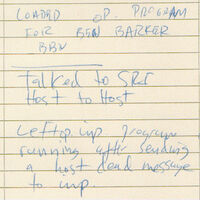 LOADED OP. PROGRAM
FOR BEN BARKER
BBN
Talked to SRI
Host to Host
Left op. imp program
running after sending
a host dead message
to imp.